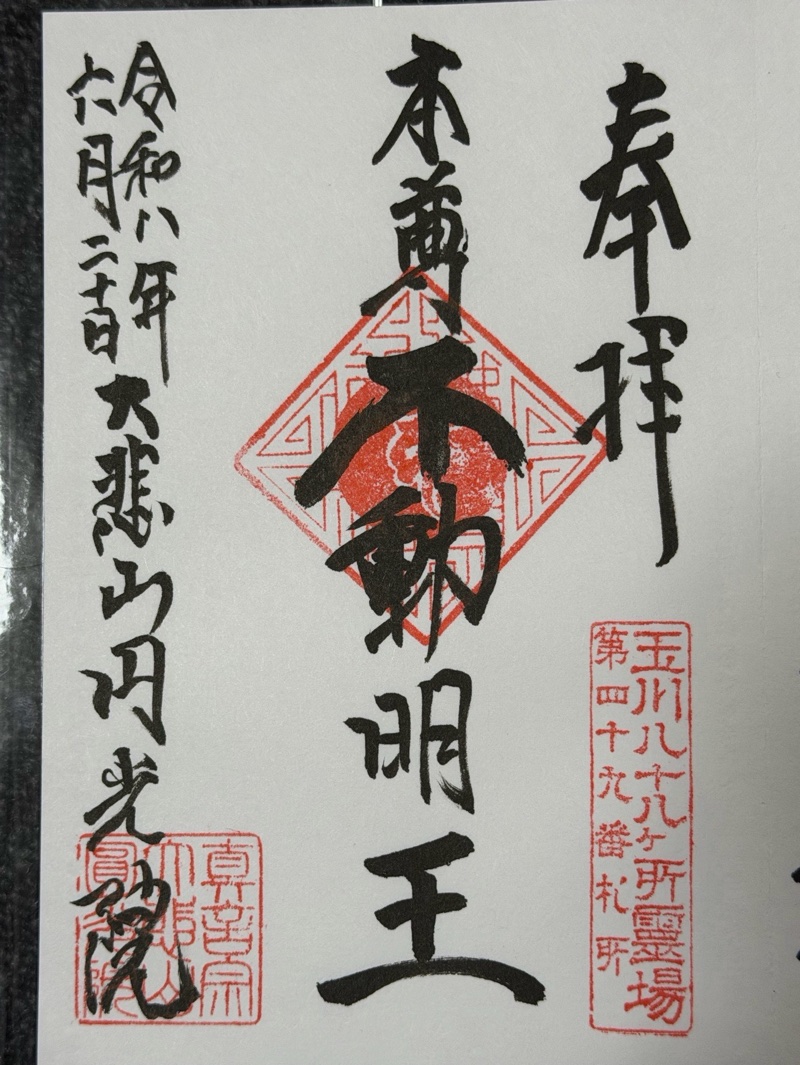 奉拝
玉川八十八ヶ所靈場
第四十九番札所
本尊不動明王
令和八年
六月二十日
大悲山円光院
真言宗
大悲山
圓光院